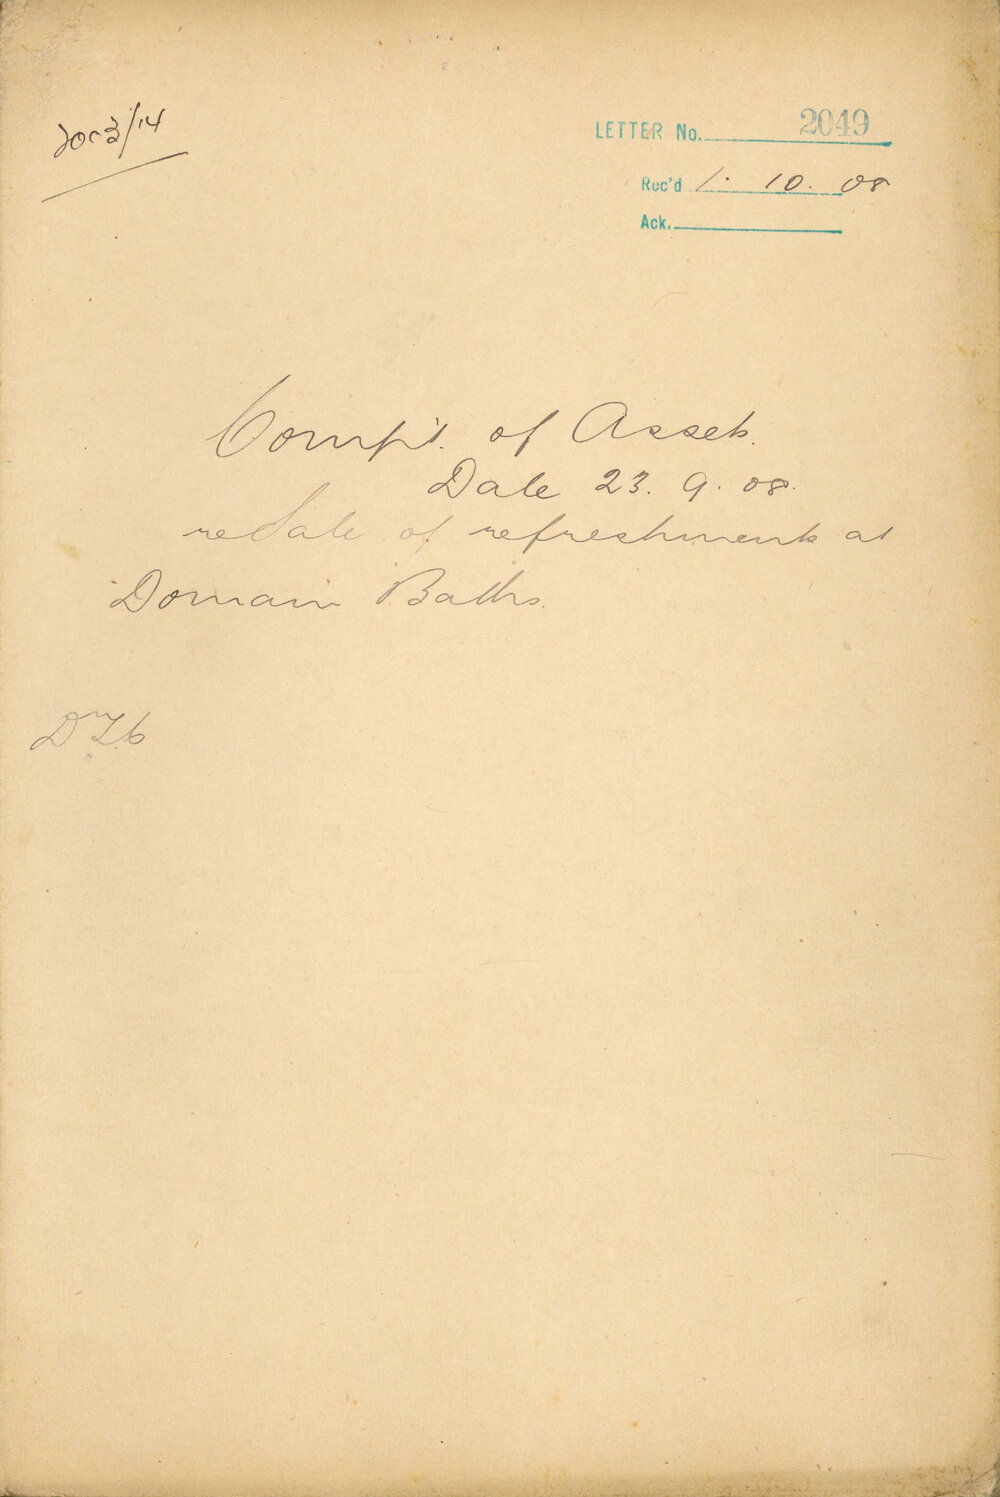 2003/14
LETTER No. 2049
Rec'd 1. 10. 08
Ack.
Comp't. of Assets.
Date 23. 9. 08.
re Sale of refreshments at
Domain Baths.